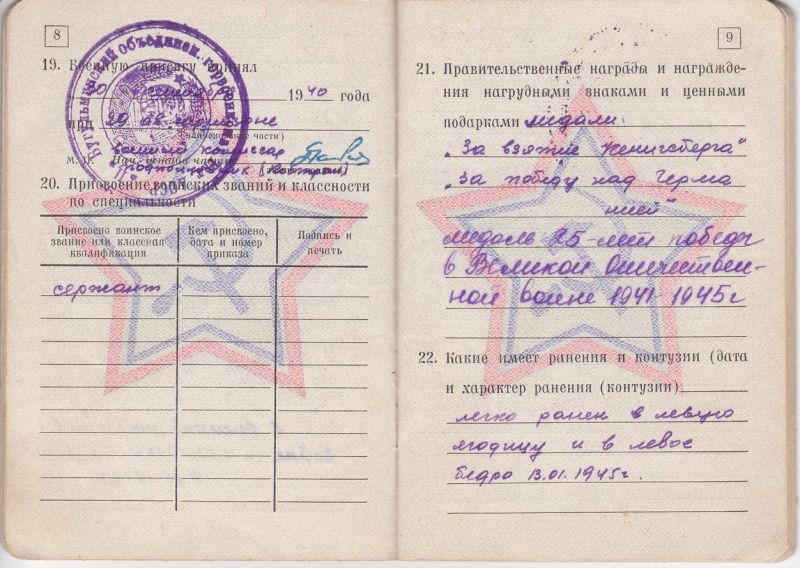 8
19. Военную присягу принял
1940 года
при 29 ав. гарнизоне
(наименование части)
военный комиссар
М. П. Нач. штаба части
подполковник
20. Присвоение воинских званий и классности
по специальности
Присвоено воинское звание или классная квалификация
Кем присвоено, дата и номер приказа
Подпись и печать
сержант
9
21. Правительственные награды и награжде-
ния нагрудными знаками и ценными
подарками медали:
„За взятие Кенигсберга"
„За победу над Герма
нией"
медаль 25 лет победы
в Великой Отечествен-
ной войне 1941-1945 г
22. Какие имеет ранения и контузии (дата
и характер ранения (контузии)
легко ранен в левую
ягодицу и в левое
бедро 13.01.1945г.